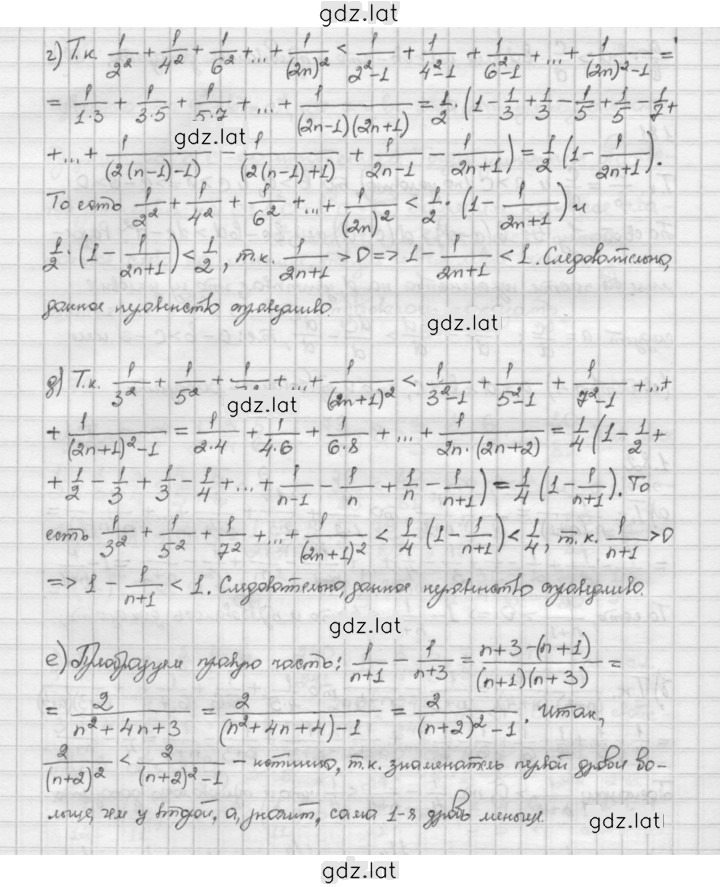 gdz.lat
г) Т.к. 1/2² + 1/4² + 1/6² + ... + 1/(2n)² < 1/(2²-1) + 1/(4²-1) + 1/(6²-1) + ... + 1/((2n)²-1) =
= 1/(1·3) + 1/(3·5) + 1/(5·7) + ... + 1/((2n-1)(2n+1)) = 1/2 · (1 - 1/3 + 1/3 - 1/5 + 1/5 - 1/7 +
gdz.lat
+ ... + 1/(2(n-1)-1) - 1/(2(n-1)+1) + 1/(2n-1) - 1/(2n+1)) = 1/2 (1 - 1/(2n+1)).
То есть 1/2² + 1/4² + 1/6² + ... + 1/(2n)² < 1/2 · (1 - 1/(2n+1)) и
1/2 · (1 - 1/(2n+1)) < 1/2, т.к. 1/(2n+1) > 0 => 1 - 1/(2n+1) < 1. Следовательно,
данное неравенство справедливо.
gdz.lat
д) Т.к. 1/3² + 1/5² + ... + 1/(2n+1)² < 1/(3²-1) + 1/(5²-1) + 1/(7²-1) + ... +
gdz.lat
+ 1/((2n+1)²-1) = 1/(2·4) + 1/(4·6) + 1/(6·8) + ... + 1/(2n·(2n+2)) = 1/4 (1 - 1/2 +
+ 1/2 - 1/3 + 1/3 - 1/4 + ... + 1/(n-1) - 1/n + 1/n - 1/(n+1)) = 1/4 (1 - 1/(n+1)). То
есть 1/3² + 1/5² + 1/7² + ... + 1/(2n+1)² < 1/4 (1 - 1/(n+1)) < 1/4, т.к. 1/(n+1) > 0
=> 1 - 1/(n+1) < 1. Следовательно, данное неравенство справедливо.
gdz.lat
е) Преобразуем правую часть: 1/(n+1) - 1/(n+3) = (n+3-(n+1))/((n+1)(n+3)) =
= 2/(n²+4n+3) = 2/((n²+4n+4)-1) = 2/((n+2)²-1). Итак,
2/(n+2)² < 2/((n+2)²-1) - истинно, т.к. знаменатель первой дроби бо-
льше, чем у второй, а, значит, сама 1-я дробь меньше.
gdz.lat
gdz.lat